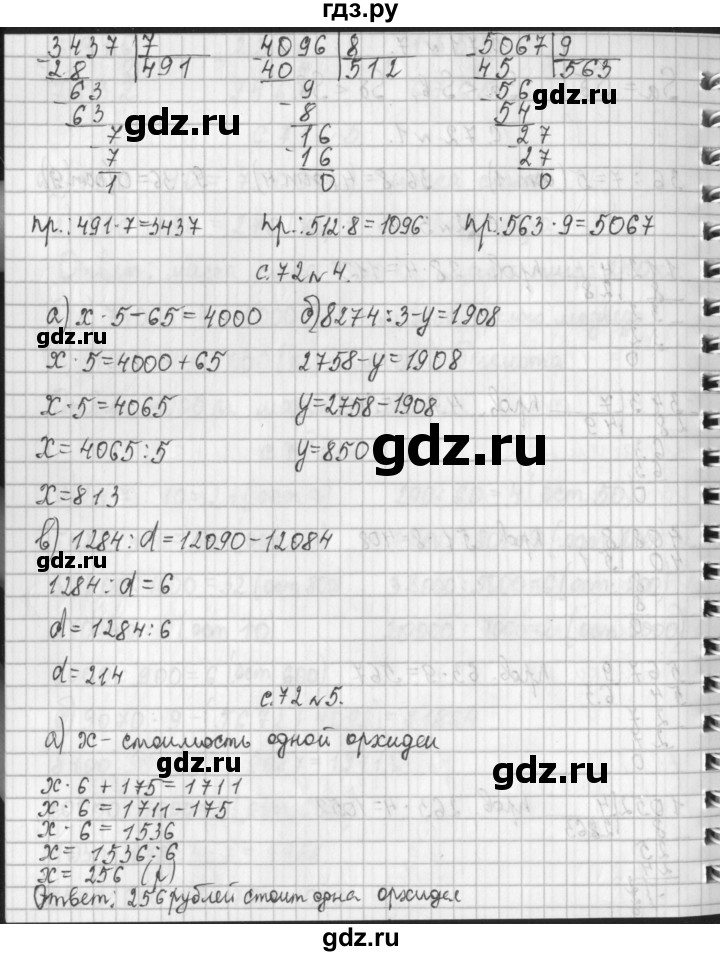 гдз.ру
3437 | 7 4096 | 8 5067 | 9
28 491 40 512 45 563
63 9 56
63 8 54
7 16 27
7 16 27
1 0 0
gdz.ru gdz.ru gdz.ru
пр.: 491·7=3437 пр.: 512·8=1096 пр.: 563·9=5067
с.72 №4.
а) x·5-65=4000 б) 8274:3-y=1908
gdz.ru
x·5=4000+65 2758-y=1908
x·5=4065 y=2758-1908
x=4065:5 y=850
gdz.ru
x=813
в) 1284:d=12090-12084
gdz.ru
1284:d=6
d=1284:6
d=214
с.72 №5.
а) x- стоимость одной орхидеи
gdz.ru gdz.ru
x·6+175=1711
x·6=1711-175
x·6=1536
x=1536:6
x=256 (р)
Ответ: 256 рублей стоит одна орхидея
gdz.ru gdz.ru
gdz.ru